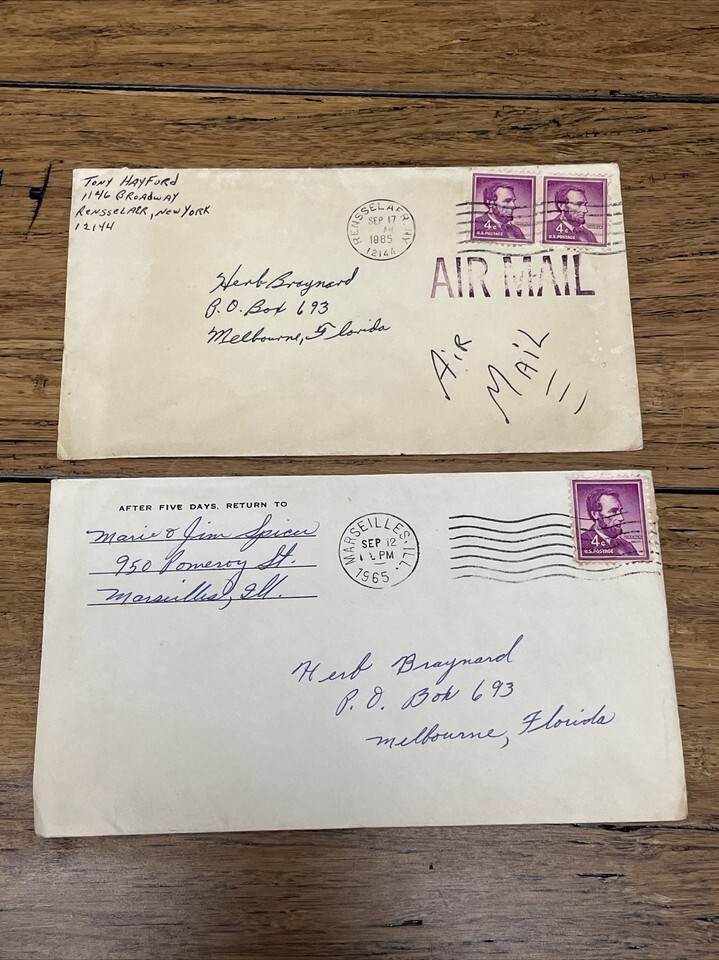 Tony Hayford
1146 Broadway
Rensselaer, New York
12144
RENSSELAER NY
SEP 17
AM
1885
12144
4¢
U.S. POSTAGE
4¢
U.S. POSTAGE
AIR MAIL
Herb Braynard
P.O. Box 693
Melbourne, Florida
AiR
MAiL
AFTER FIVE DAYS, RETURN TO
Marie & Jim Spicer
950 Pomeroy St.
Marseilles, Ill.
MARSEILLES, ILL.
SEP 12
PM
1965
4¢
U.S. POSTAGE
Herb Braynard
P.O. Box 693
Melbourne, Florida